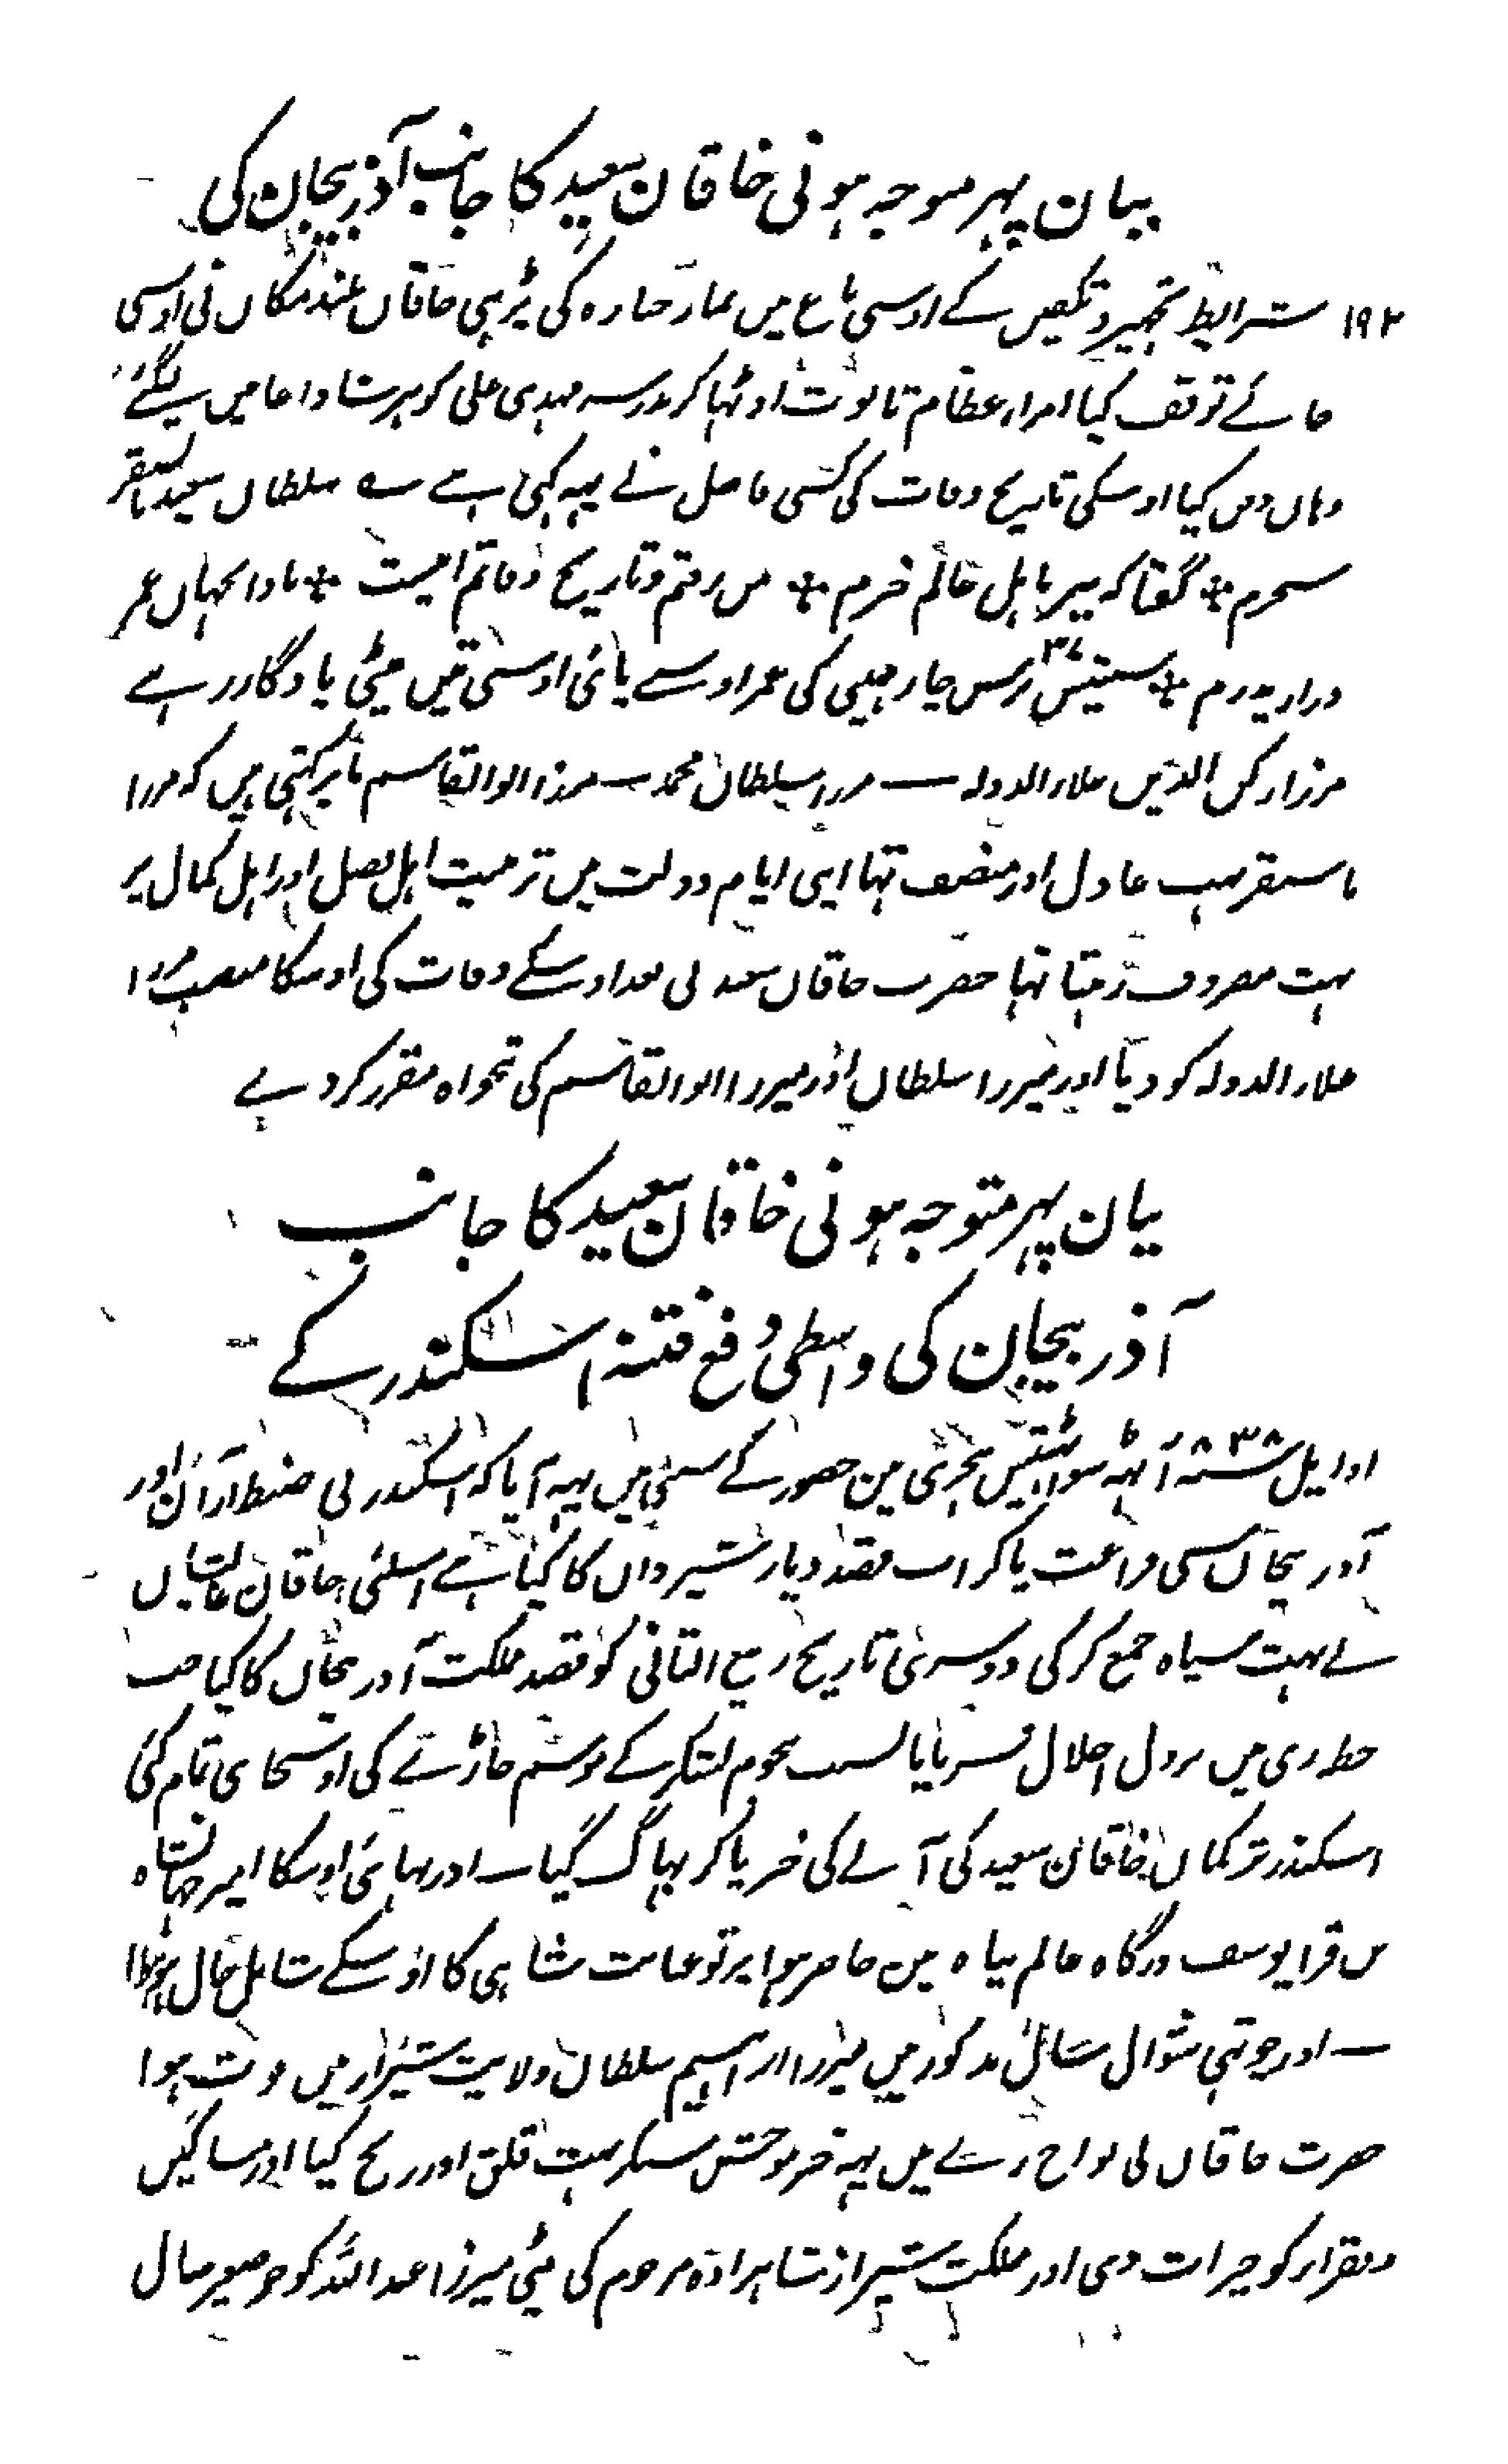 بیان پہر متوجہ ہونی خاقان سعید کا جانب آذربیجان کی
۱۹۲ شرایط تجہیز و تکفین کے اوسی باغ میں نماز جنازہ کی پڑہی خاقان بلند مکان نی اوسی
جا کے توقف کیا امراء عظام تابوت اوٹہا کر مدرسہ مہدی علی گوہرشاد آغا میں لیگئے
وہاں دفن کیا اوسکی تاریخ وفات کی کسی فاضل نے یہہ کہی ہے سے سلطان سعید بایسنقر
سحرم * گفتا کہ ببر باہل عالم خبرم * من رفتم و تاریخ وفاتم اینست * بادا بجہان عمر
دراز پدرم * سینتیس ۳۷ برس چار مہینے کی عمر اوسے پائی اوسی تین بیٹی یادگار رہے
مرزا رکن الدین علاء الدولہ — مرزا سلطان محمد — مرزا ابو القاسم بابر کہتی ہیں کہ مرزا
بایسنقر بہت عادل اور منصف تہا اپنی ایام دولت میں تربیت اہل فضل اور اہل کمال پر
بہت مصروف رہتا تہا حضرت خاقان سعید نی بعد اوسکے وفات کی اوسکا منصب مرزا
علاء الدولہ کو دیا اور میرزا سلطان اور میرزا ابو القاسم کی تنخواہ مقرر کر دے
بیان پہر متوجہ ہونی خاقان سعید کا جانب
آذربیجان کی واسطی دفع فتنہ اسکندر کے
اوایل ۸۳۸ سنہ آٹہہ سو اڑتیس ہجری مین حضور کے سننی میں یہہ آیا کہ اسکندر نی ضبط آران اور
آذربیجان سی فراغت پاکر اب قصد دیار شیروان کا کیا ہے اسلئی خاقان عالیشان
نے بہت سپاہ جمع کر کی دوسری تاریخ ربیع الثانی کو قصد مملکت آذربیجان کا کیا جب
خطہ ری میں نزول اجلال فرمایا بسبب ہجوم لشکر کے موسم جاڑے کی اوسیجا ی تمام کئی
اسکندر ترکمان خاقان سعید کی آنے کی خبر پاکر بہاگ گیا — اور بہائی اوسکا امیر جہانشاہ
بن قرا یوسف درگاہ عالم پناہ مین حاضر ہوا پرتو عنایت شاہی کا اوسکے شامل حال ہوا
— اور چوتہی شوال سال مذکور میں میرزا ابراہیم سلطان ولایت شیراز میں فوت ہوا
حضرت خاقان نی نواح رے میں یہہ خبر موحش سنکر بہت قلق اور رنج کیا اور مساکین
و فقرا کو خیرات دی اور مملکت شیراز شاہزادہ مرحوم کی بیٹی میرزا عبد اللہ کو جو صغیر سال